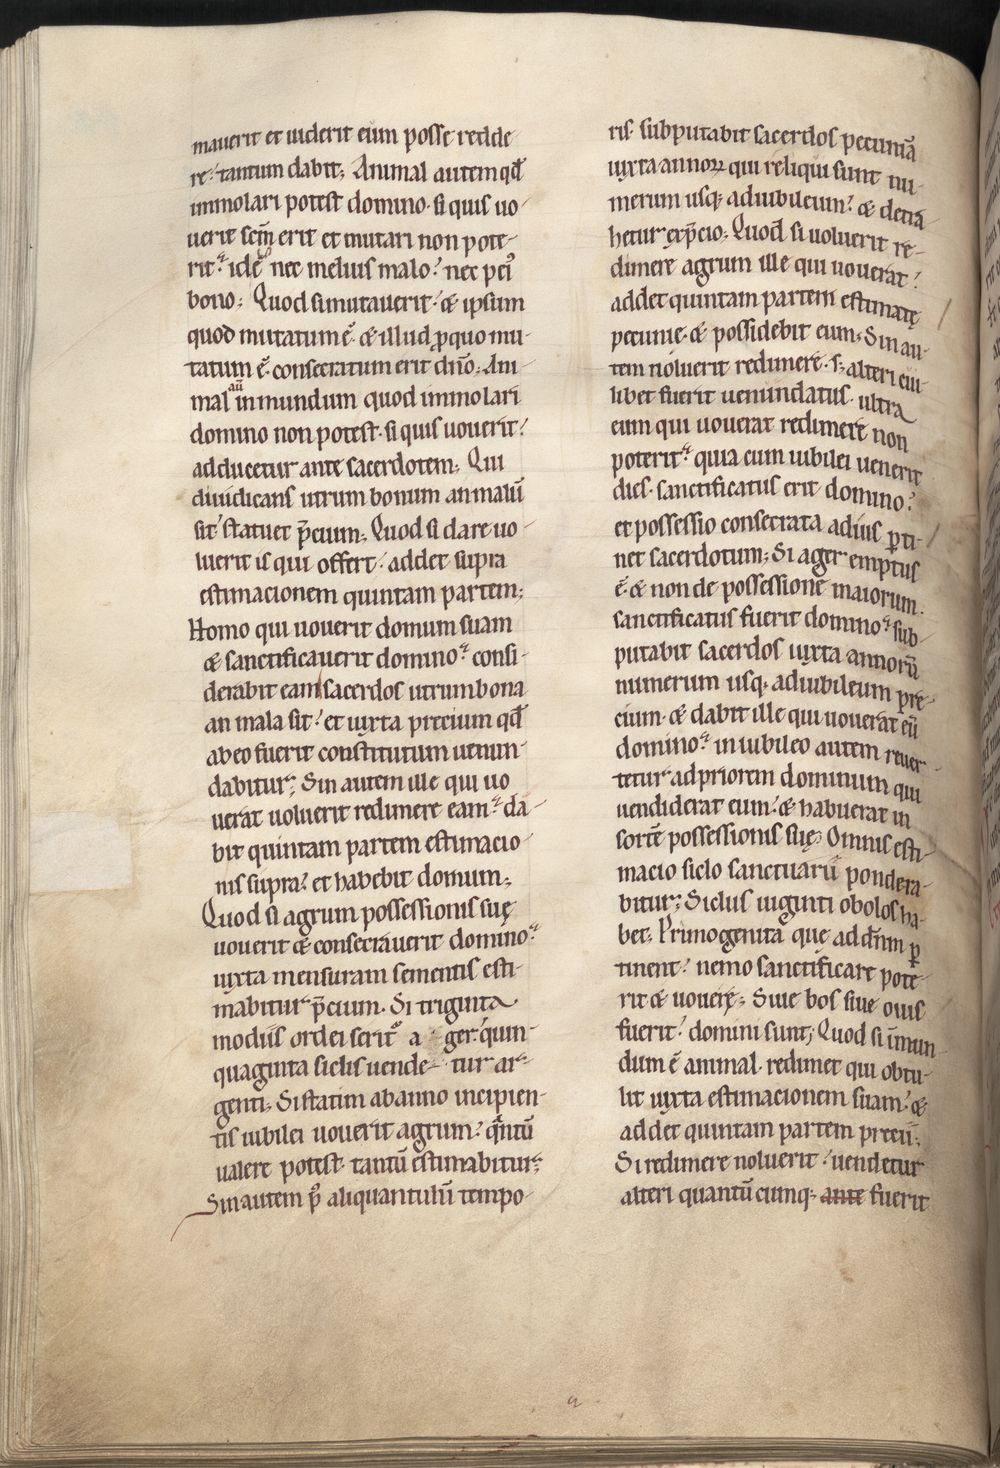 mauerit et uiderit eum posse redde-
re: tantum dabit; Animal autem qđ
immolari potest domino. si quis uo-
uerit scm̄ erit et mutari non pote-
rit: id ē nec melius malo: nec pei᷒
bono; Quod si mutauerit: & ipsum
quod mutatum ē. & illud ꝓ quo mu-
tatum ē. consecratum erit dn̄o; Ani-
mal aūt inmundum quod immolari
domino non potest. si quis uouerit:
adducetur ante sacerdotem; Qui
diiudicans utrum bonum an malū
sit: statuet p̄cium; Quod si dare uo-
luerit is qui offert: addet supra
estimacionem quintam partem;
Homo qui uouerit domum suam
& sanctificauerit domino: consi-
derabit eam sacerdos utrum bona
an mala sit: et iuxta precium qđ
ab eo fuerit constitutum uenun-
dabitur; Sin autem ille qui uo
uerat uoluerit redimere eam: da-
bit quintam partem estimacio-
nis supra: et habebit domum;
Quod si agrum possessionis suę
uouerit & consecrauerit domino:
iuxta mensuram sementis esti-
mabitur p̄cium. Si triginta
modiis ordei serit᷒ a ger: quin-
quaginta siclis uende- tur ar-
genti; Si statim ab anno incipien-
tis iubilei uouerit agrum: qͣntū
ualere potest. tantū estimabitur;
Sin autem p᷒ aliquantulū tempo-
ris. subputabit sacerdos pecuniā
iuxta annoꝝ qui reliqui sunt nu-
merum usq; ad iubileum: & detra-
hetur ex p̄cio; Quod si uoluerit re-
dimere agrum ille qui uouerat:
addet quintam partem estimatę
pecunie. & possidebit eum; Sin au-
tem noluerit redimere. s; alteri cui-
libet fuerit uenundatus. ultra
eum qui uouerat redimere non
poterit: quia cum iubilei uenerit
dies. sanctificatus erit domino:
et possessio consecrata ad ius ꝑti-
net sacerdotum; Si ager emptus
ē. & non de possessione maiorum.
sanctificatus fuerit domino: sub-
putabit sacerdos iuxta annorū
numerum usq; ad iubileum pre-
cium. & dabit ille qui uouerat eū
domino: in iubileo autem reuer-
tetur ad priorem dominum qui
uendiderat eum: & habuerat in
sortē possessionis suę; Omnis esti-
macio siclo sanctuarii pondera-
bitur; Siclus uiginti obolos ha-
bet; Primogenita que ad dn̄m ꝑ
tinent: nemo sanctificare pote-
rit & uouere; Siue bos siue ouis
fuerit: domini sunt; Quod si īmun
dum ē animal. redimet qui obtu-
lit iuxta estimacionem suam: &
addet quintam partem precii;
Si redimere noluerit: uendetur
alteri quantū cumq; ante fuerit